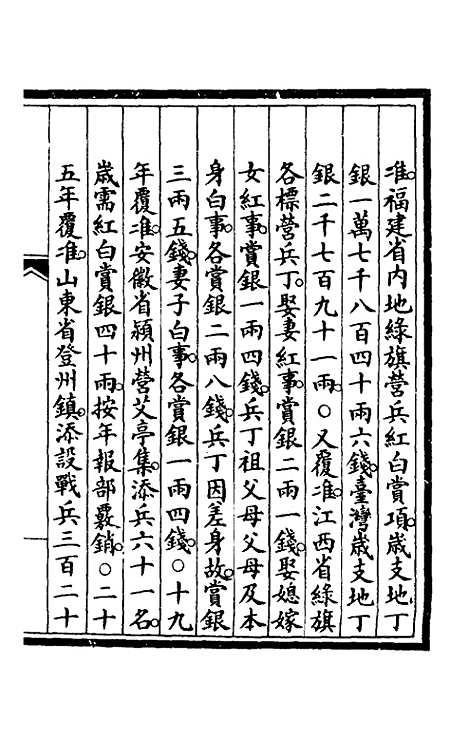 准。福建省內地綠旗營兵紅白賞項。歲支地丁
銀一萬七千八百四十兩六錢。臺灣歲支地丁
銀二千七百九十一兩。○又覆准。江西省綠旗
各標營兵丁。娶妻紅事。賞銀二兩一錢。娶媳嫁
女紅事。賞銀一兩四錢。兵丁祖父母父母及本
身白事。各賞銀二兩八錢。兵丁因差身故。賞銀
三兩五錢。妻子白事。各賞銀一兩四錢。○十九
年覆准。安徽省潁州營艾亭集。添兵六十一名。
歲需紅白賞銀四十兩。按年報部覈銷。○二十
五年覆准。山東省登州鎮。添設戰兵三百二十